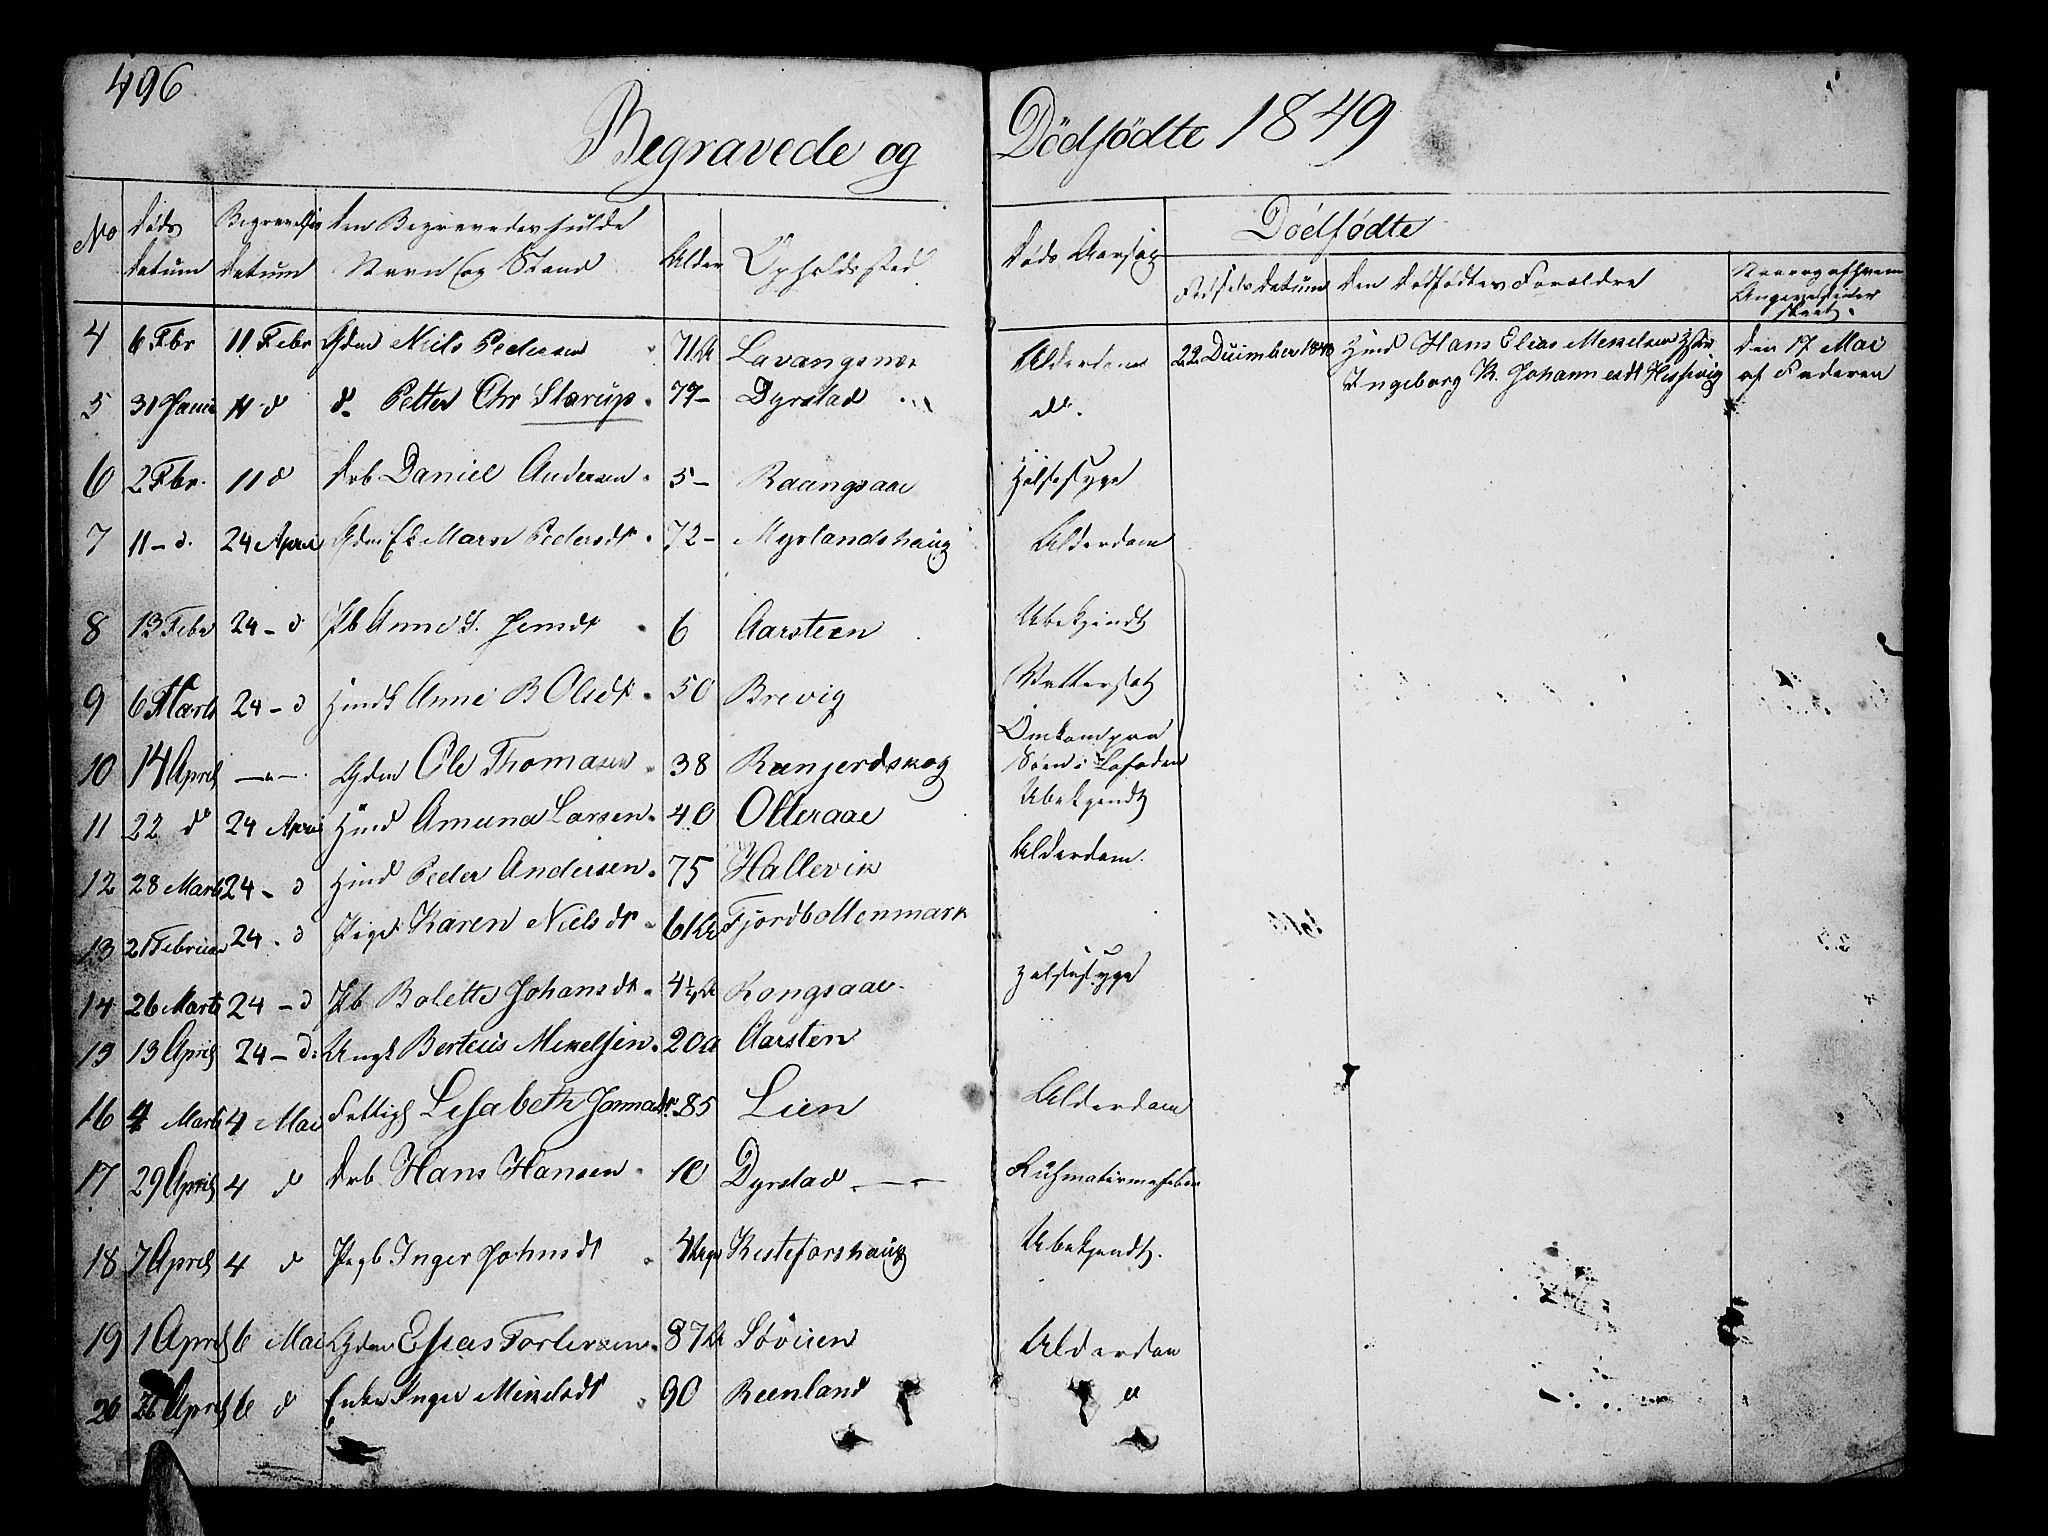 496
Begravede og Dödfödte 1849
No Døds Datum Begravelses Datum Den Begravedes fulde Navn og Stand Alder Opholdssted Døds Aarsag Dödfödte
Fødsels Datum Den Dødfødtes Forældre
4 6 Fbr 11 Febr Gdm Niels Pedersen 71 Lavangsnæs Alderdom 22 December 1848 Hmd Hans Elias Mekelsen den 17 Mai
Ingeborg K. Johannesdt af Faderen
5 31 Janu 11 d d Petter Chr Starup 77 - Dyrstad do.
6 2 Fbr. 11 d Drb Daniel Andersen 5 - Raangsaae Halssyge
7 11 - d. 24 April Gdm Ek Maren Pedersdt 72 - Myrlandshaug Alderdom
8 13 Febr 24 - d Pb Anne S. Jensdt 6 Aarsteen Ubekjendt
9 6 Marts 24 - d Hmdk Anne B Olsdt 50 Brevig Vattersot
10 14 April — " — Gdm Ole Thomasen 38 Renjerdskog Omkom paa Søen i Lofoden
11 22 d 24 April Hmd Amund Larsen 40 Olteraae Ubekjendt
12 28 Marts 24 - d Hmd Peder Andersen 75 Hallevik Alderdom.
13 21 Februar 24 - d Pige Karen Nielsdt 6 Fjordbottenmark
14 26 Marts 24 - d Pb Bolette Johansdt 4½ Kongsaae Halssyge
15 13 April 24 - d: Ungk Berteus Mekelsen 20 Aarsten
16 4 Marts 4 Mai Fattigl Lisabeth 85 Lien Alderdom
17 29 April 4 d Drb Hans Hansen 10 Dyrstad Ruhmatismefeber
18 7 April 4 d Pigb Inger Johnsdt 4 Kesteforshaug Ubekjendt.
19 1 April 6 Mai Gdm Esias Torlersen 87 Søveien Alderdom
20 26 April 6 d Enke Inger Mikelsdt 90 Reenland d